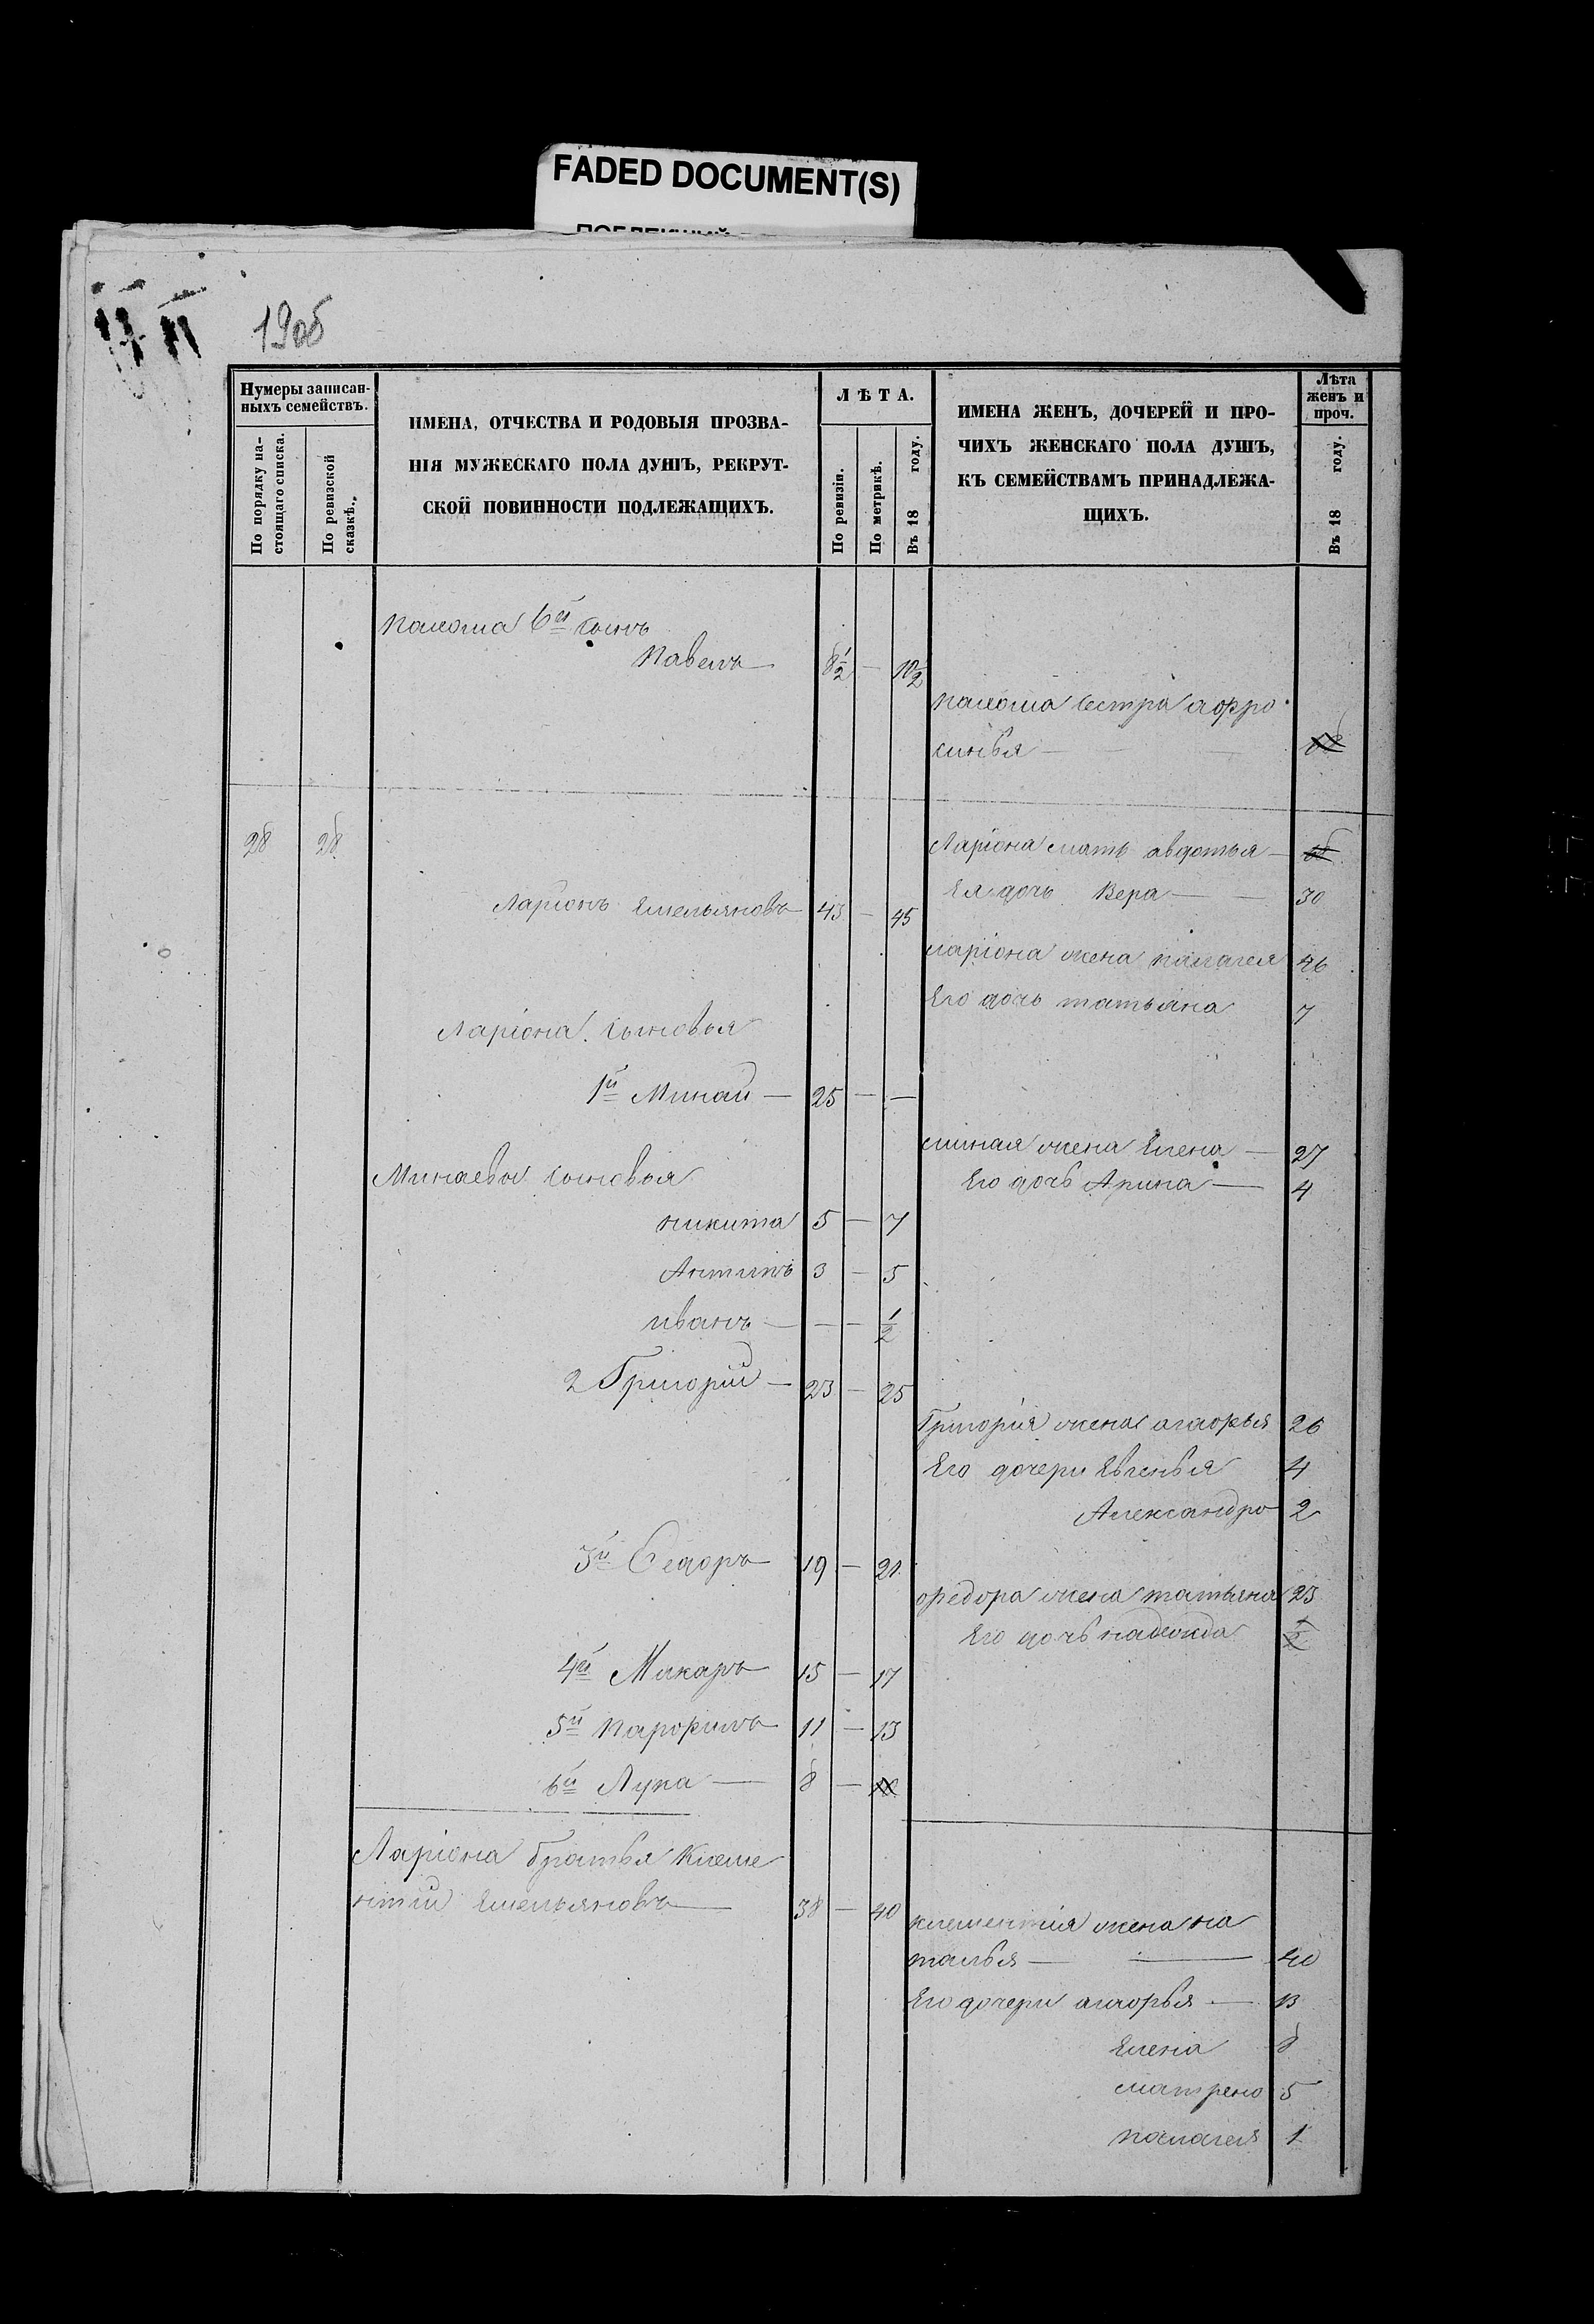 FADED DOCUMENT(S)
190б
Нумеры записан-
ныхъ семействъ.
По порядку на-
стоящаго списка.
По ревизской
сказкѣ.
ИМЕНА, ОТЧЕСТВА И РОДОВЫЯ ПРОЗВА-
НІЯ МУЖЕСКАГО ПОЛА ДУШЪ, РЕКРУТ-
СКОЙ ПОВИННОСТИ ПОДЛЕЖАЩИХЪ.
ЛѢТА.
По ревизіи.
По метрикѣ.
Въ 18 году.
ИМЕНА ЖЕНЪ, ДОЧЕРЕЙ И ПРО-
ЧИХЪ ЖЕНСКАГО ПОЛА ДУШЪ,
КЪ СЕМЕЙСТВАМЪ ПРИНАДЛЕЖА-
ЩИХЪ.
Лѣта
женъ и
проч.
Въ 18 году.
6й сынъ
Павелъ 8½ — 10½
сестра афро
синья —
28 28
Ларіона мать авдотья —
Ея дочь Вера — 30
Ларіонъ Емельяновъ 43 — 45
ларіона жена палагея 46
Его дочь татьяна 7
Ларіона сыновья
1й Минай — 25 — —
миная жена Елена — 27
Минаевы сыновья
Его дочь Арина — 4
никита 5 — 7
Антипъ 3 — 5
иванъ — — — ½
2 Григорій — 23 — 25
Григорія жена агафья 26
Его дочери Евгенья 4
Александра 2
3й Федоръ 19 — 21
федора жена татьяна 23
Его дочь надежда ½
4й Макаръ 15 — 17
5й Парфилъ 11 — 13
6й Лука — 8 — 10
Ларіона братья Клеме
нтій Емельяновъ — 38 — 40
клементія жена на
талья — — 40
Его дочери агафья — 13
Елена 8
матрена 5
палагея 1